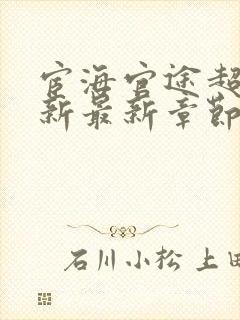 宦海官途超
新最新章节
石川小松 上田